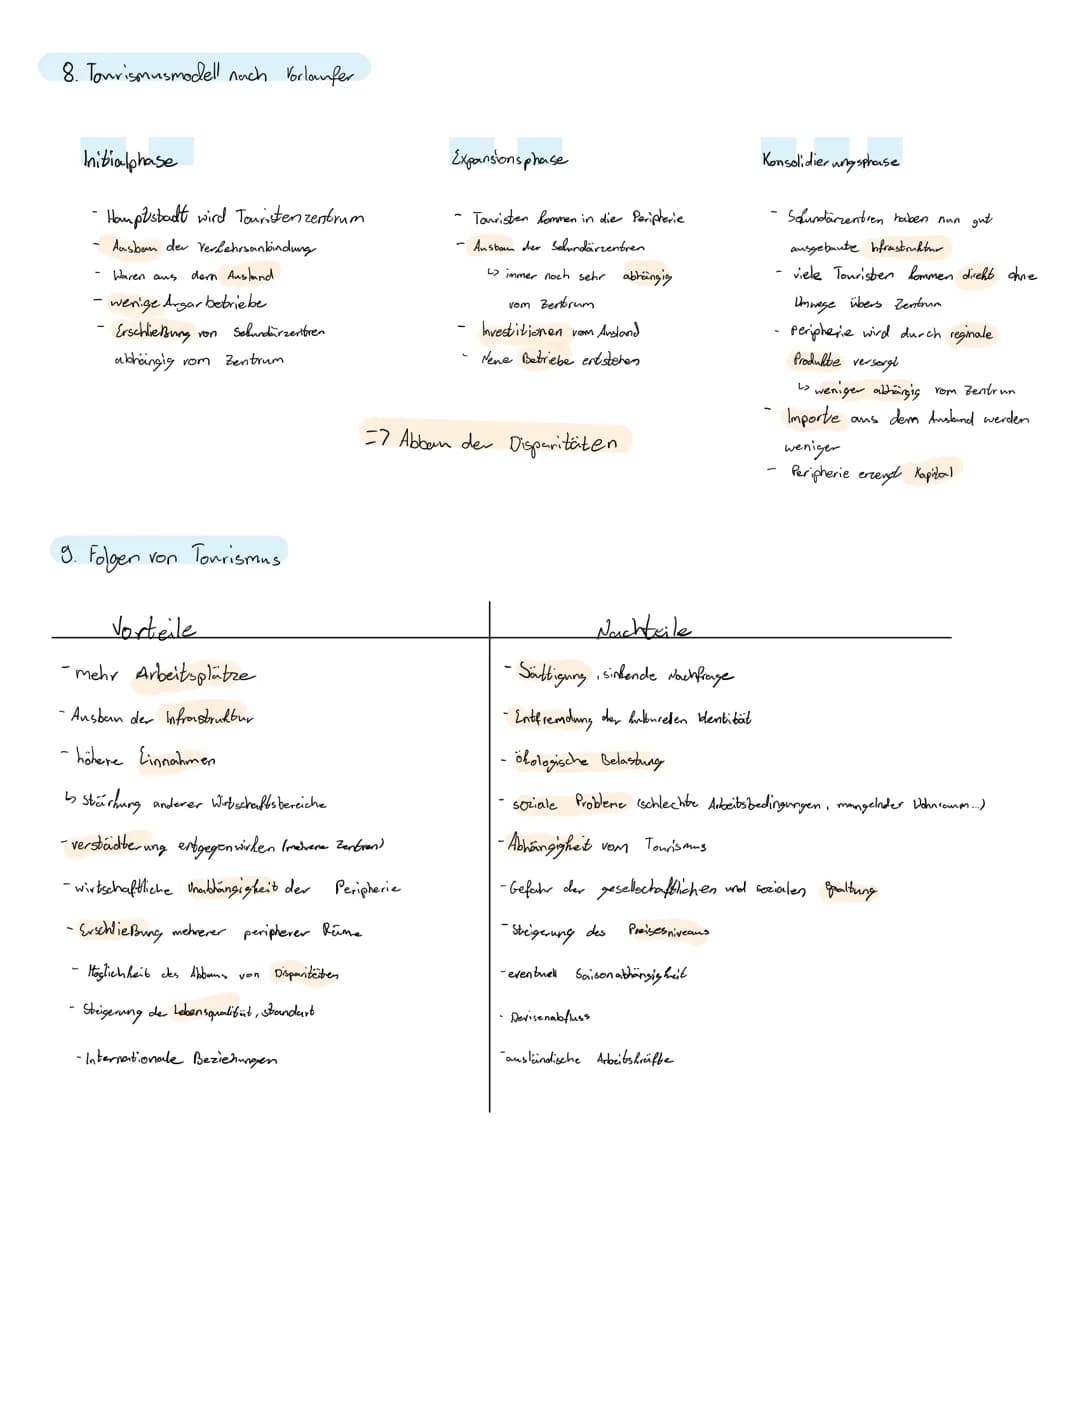 8. Tourismusmodell nach Vorlaufer
Initialphase
- Hauptstadt wird Touristenzentrum
- Ausbau der Verkehrsanbindung
- Waren aus dem Ausland
- wenige Argarbetriebe
- Erschließung von Sekundärzentren
abhängig vom Zentrum
Expansionsphase
- Touristen kommen in die Peripherie
- Ausbau der Sekundärzentren
↳ immer noch sehr abhängig
vom Zentrum
- Investitionen vom Ausland
- Neue Betriebe entstehen
Konsolidierungsphase
- Sekundärzentren haben nun gut
ausgebaute Infrastruktur
- viele Touristen kommen direkt ohne
Umwege übers Zentrum
- Peripherie wird durch reginale
Produkte versorgt
↳ weniger abhängig vom Zentrum
- Importe aus dem Ausland werden
weniger
- Peripherie erzeugt Kapital
=> Abbau der Disparitäten
9. Folgen von Tourismus
Vorteile
- mehr Arbeitsplätze
- Ausbau der Infrastruktur
- höhere Einnahmen
↳ Stärkung anderer Wirtschaftsbereiche
- verstädterung entgegenwirken (mehrere Zentren)
- wirtschaftliche Unabhängigkeit der Peripherie
- Erschließung mehrerer peripherer Räume
- Möglichkeit des Abbaus von Disparitäten
- Steigerung der Lebensqualität, standart
- Internationale Beziehungen
Nachteile
- Sättigung, sinkende Nachfrage
- Entfremdung der kulturellen Identität
- ökologische Belastung
- soziale Probleme (schlechte Arbeitsbedingungen, mangelnder Wohnraum...)
- Abhängigkeit vom Tourismus
- Gefahr der gesellschaftlichen und sozialen Spaltung
- Steigerung des Preisesniveaus
- eventuell Saisonabhängigkeit
- Devisenabfluss
- ausländische Arbeitskräfte